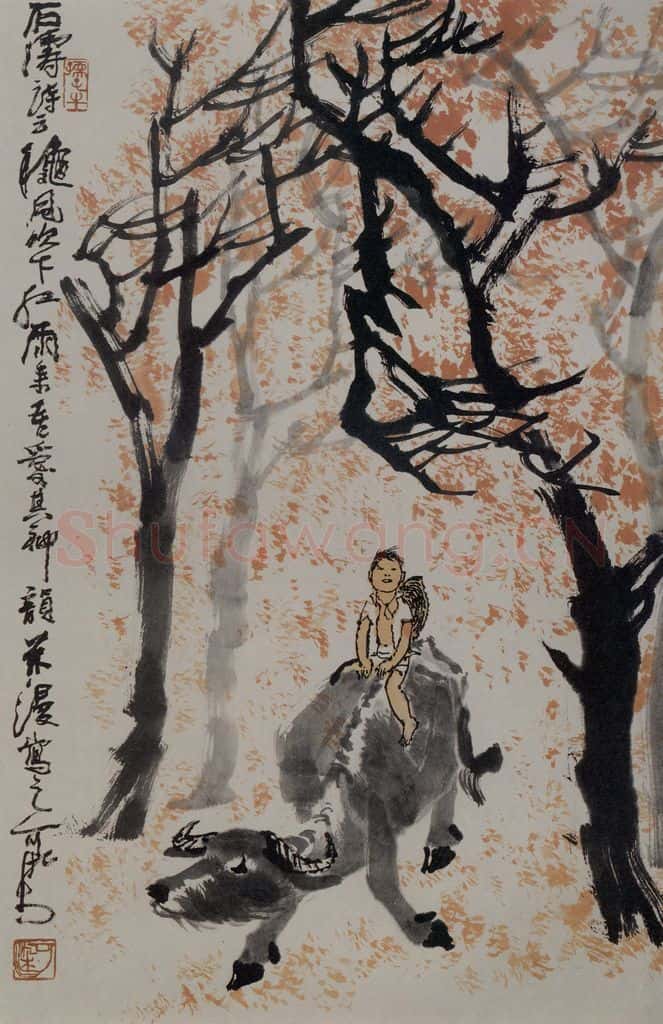 石濤詩云龝風吹下紅雨来吾愛其神韻漫寫之可染
可染
Shufawang.CN